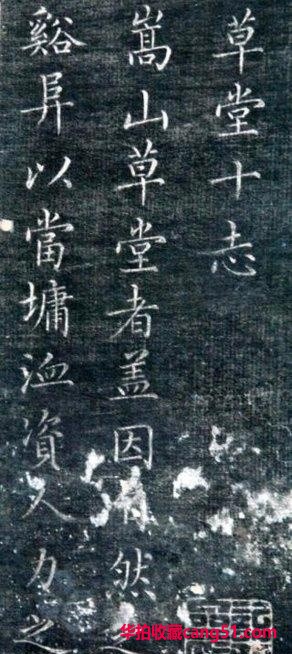 草堂十志
嵩山草堂者盖因自然之
谿阜以當墉洫資人力之
华拍收藏cang51.com